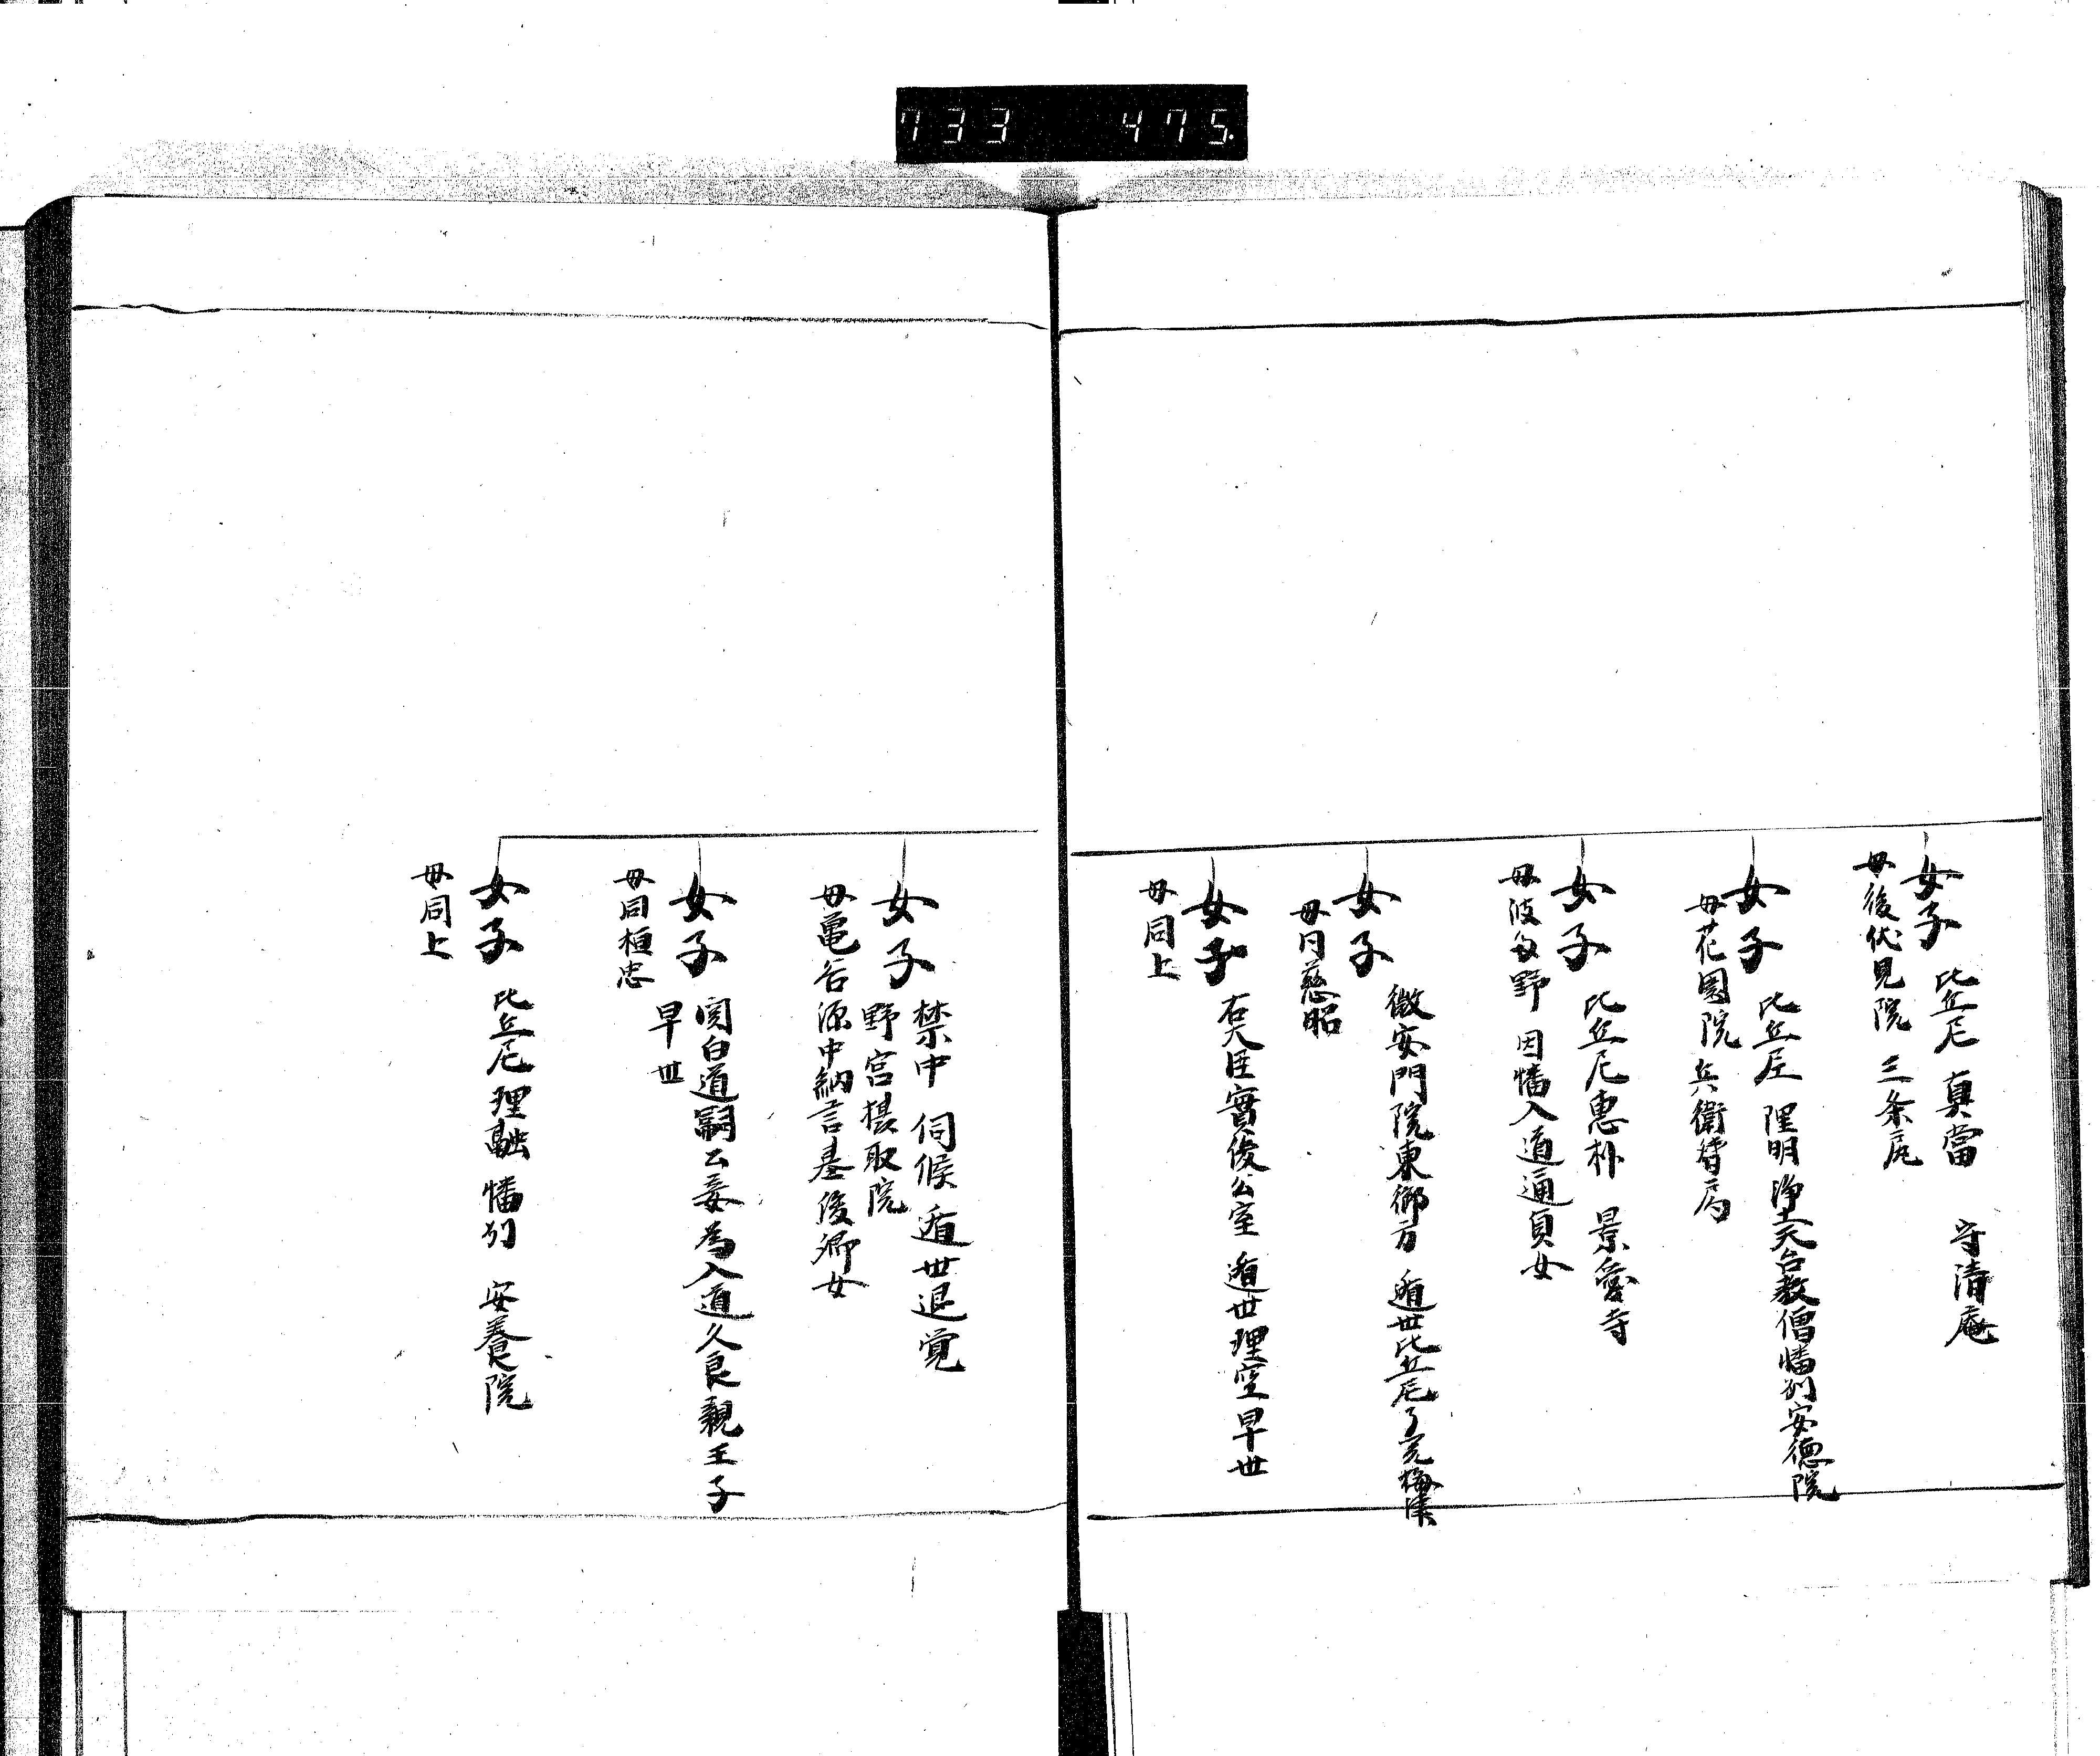 733 475
女子 比丘尼 真當 守清庵
母後伏見院 三条局
女子 比丘尼 理明 浄土天台教僧 幡州安徳院
母花園院兵衛督局
女子 比丘尼恵朴 景愛寺
母波多野因幡入道通貞女
女子 徽安門院東御方 遁世比丘尼了完 梅津
母同慈昭
女子 右大臣實俊公室 遁世理空 早世
母同上
女子 禁中伺候 遁世退覚
野宮摂取院
母亀谷源中納言基俊卿女
女子 関白道嗣公妾 為入道久良親王子
早世
母同桓忠
女子 比丘尼理融 幡州 安養院
母同上